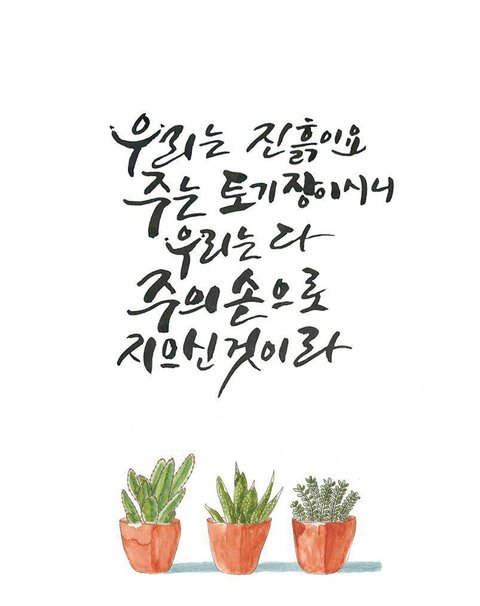 우리는 진흙이요
주는 토기장이시니
우리는 다
주의 손으로
지으신 것이라